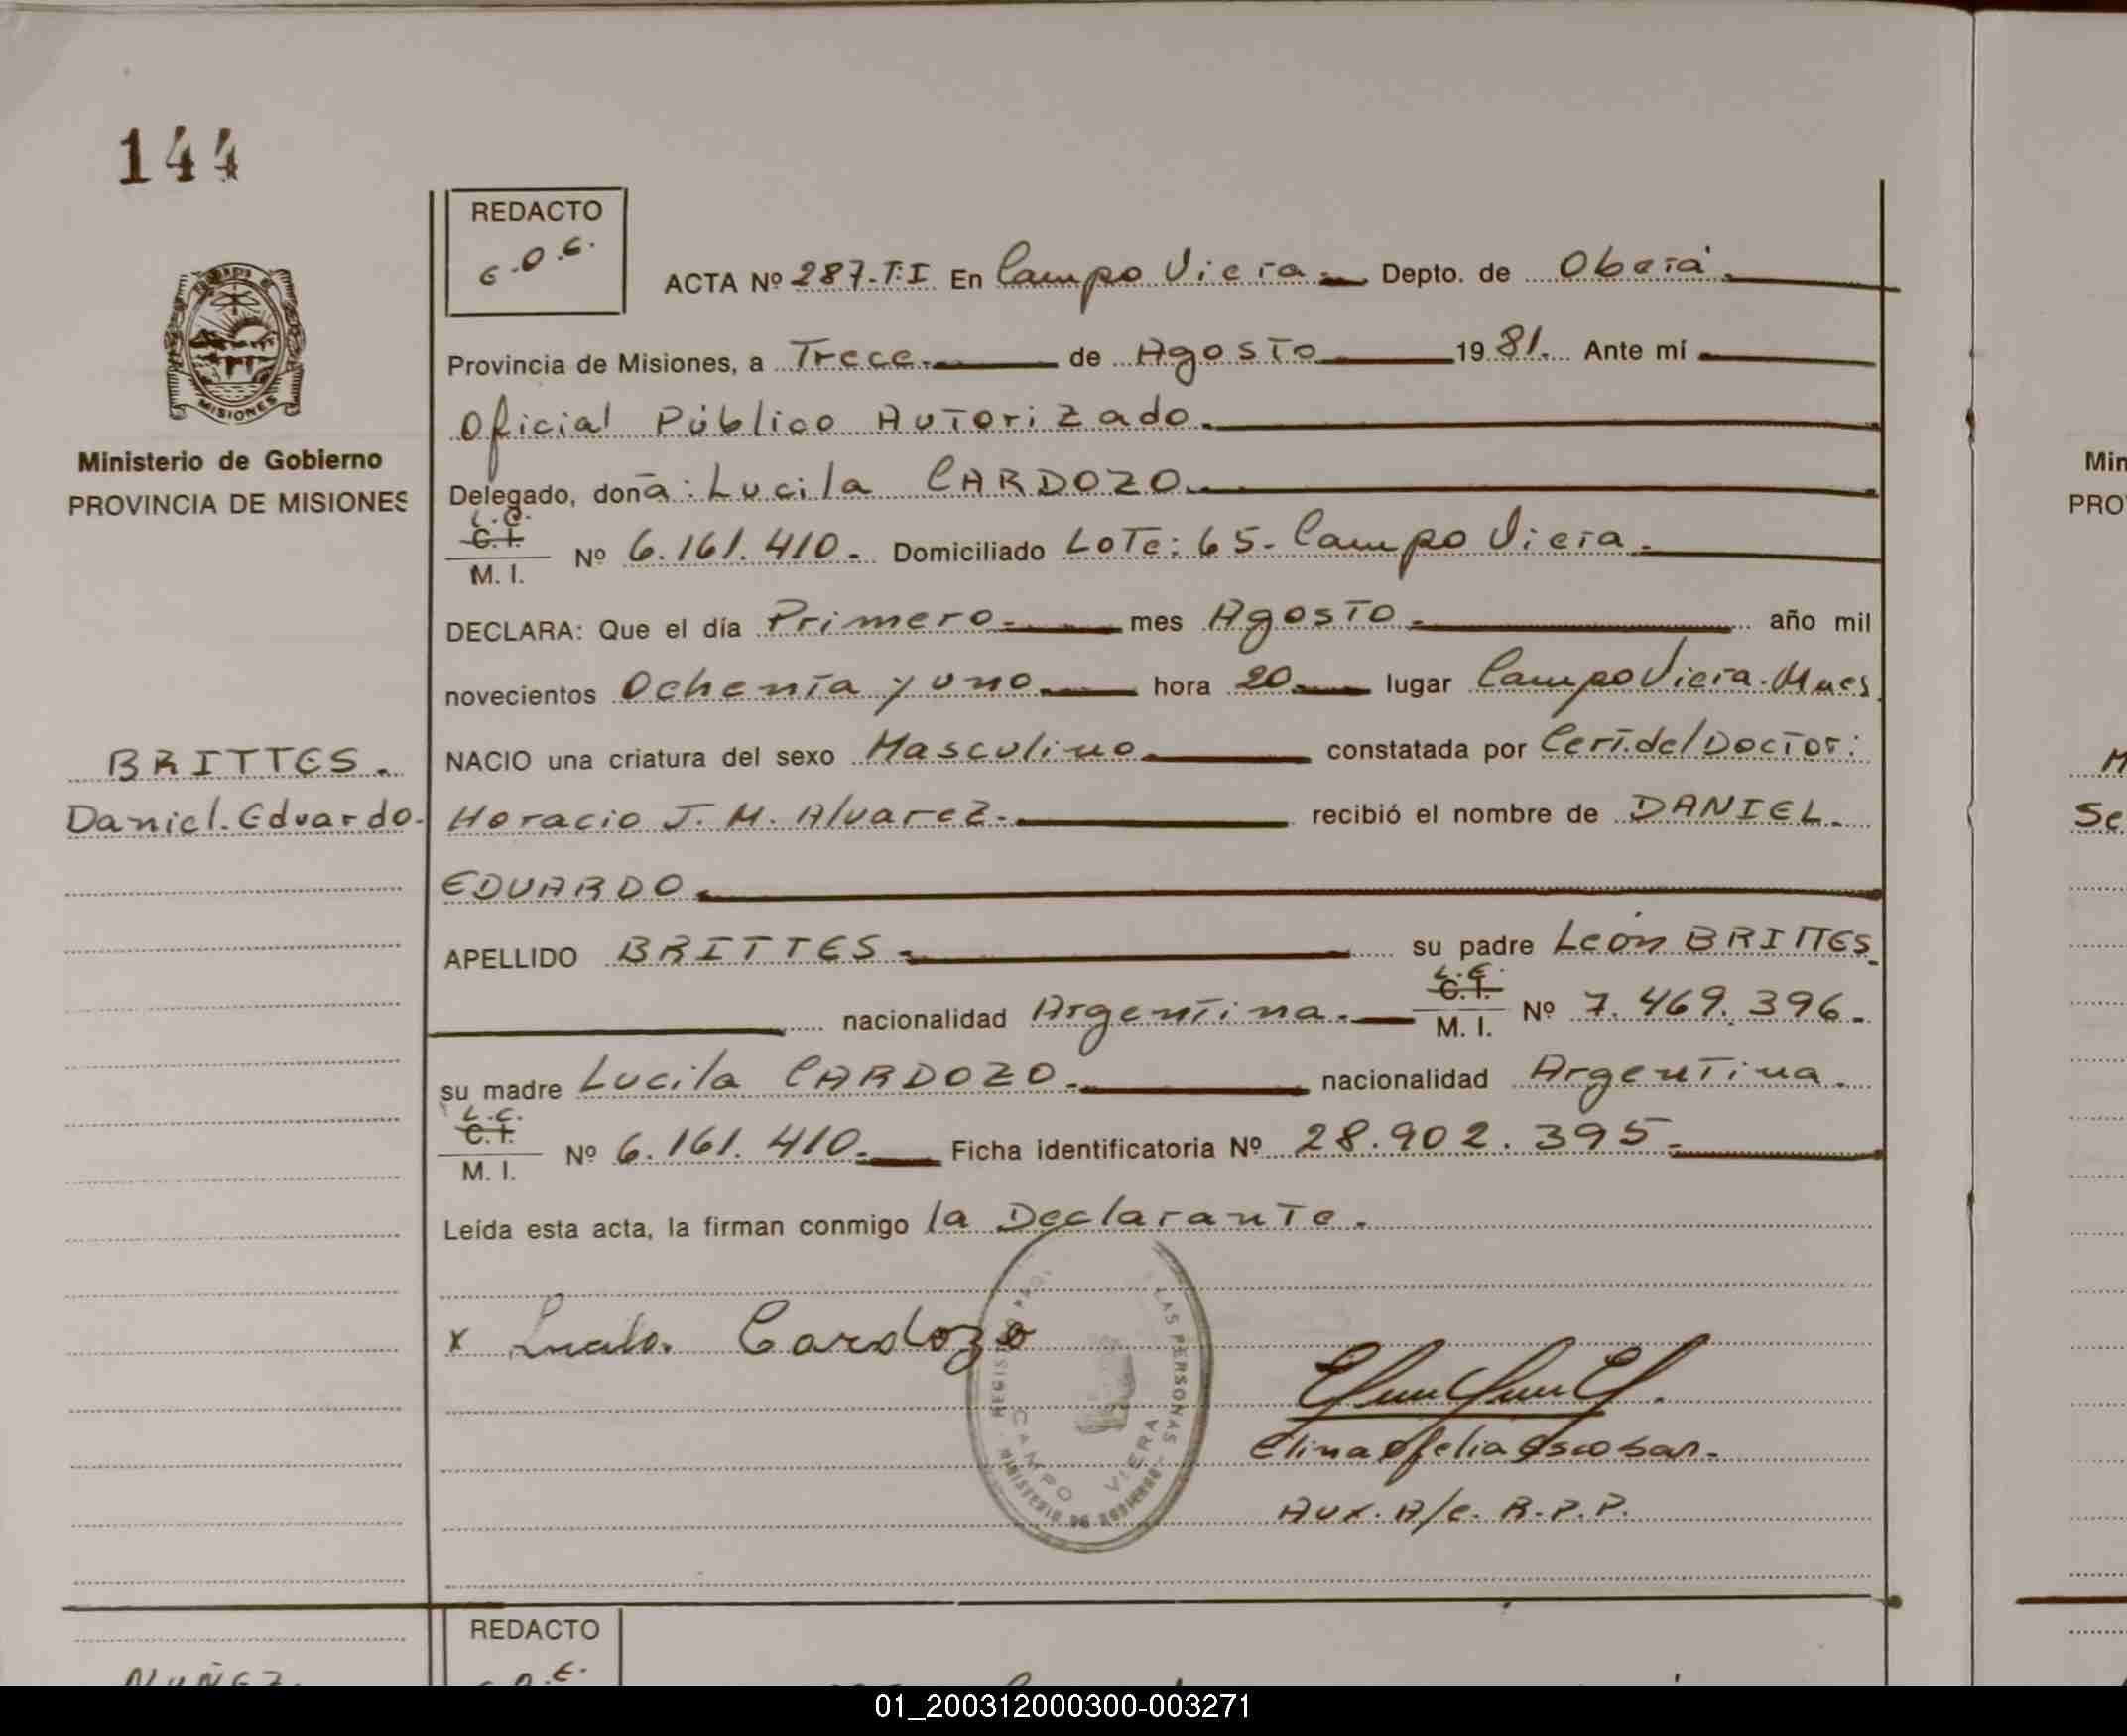 144
REDACTO
E.O.E.
ACTA Nº 287-T:I En Campo Viera. Depto. de Oberá.
Provincia de Misiones, a Trece. de Agosto 1981. Ante mí
Oficial Público Autorizado.
MISIONES
Ministerio de Gobierno
PROVINCIA DE MISIONES
Delegado, doña: Lucila CARDOZO.
L.C.
C.I.
M. I. Nº 6.161.410. Domiciliado Lote: 65. Campo Viera.
DECLARA: Que el día Primero. mes Agosto. año mil
novecientos Ochenta y uno hora 20 lugar Campo Viera. Mnes
BRITTES.
Daniel. Eduardo.
NACIO una criatura del sexo Masculino constatada por Cert. del Doctor:
Horacio J. M. Alvarez. recibió el nombre de DANIEL.
EDUARDO.
APELLIDO BRITTES. su padre León BRITTES.
nacionalidad Argentina. L.E. C.I. M. I. Nº 7.469.396.
su madre Lucila CARDOZO. nacionalidad Argentina.
L.C.
C.I.
M. I. Nº 6.161.410. Ficha identificatoria Nº 28.902.395.
Leída esta acta, la firman conmigo la Declarante.
x Lucila. Cardozo
LAS PERSONAS
CAMPO VIERA
MINISTERIO DE GOBIERNO
Elina Ofelia Escobar.
Aux. A/c. R.P.P.
REDACTO
NUÑEZ.
Min
PRO
Se
01_200312000300-003271